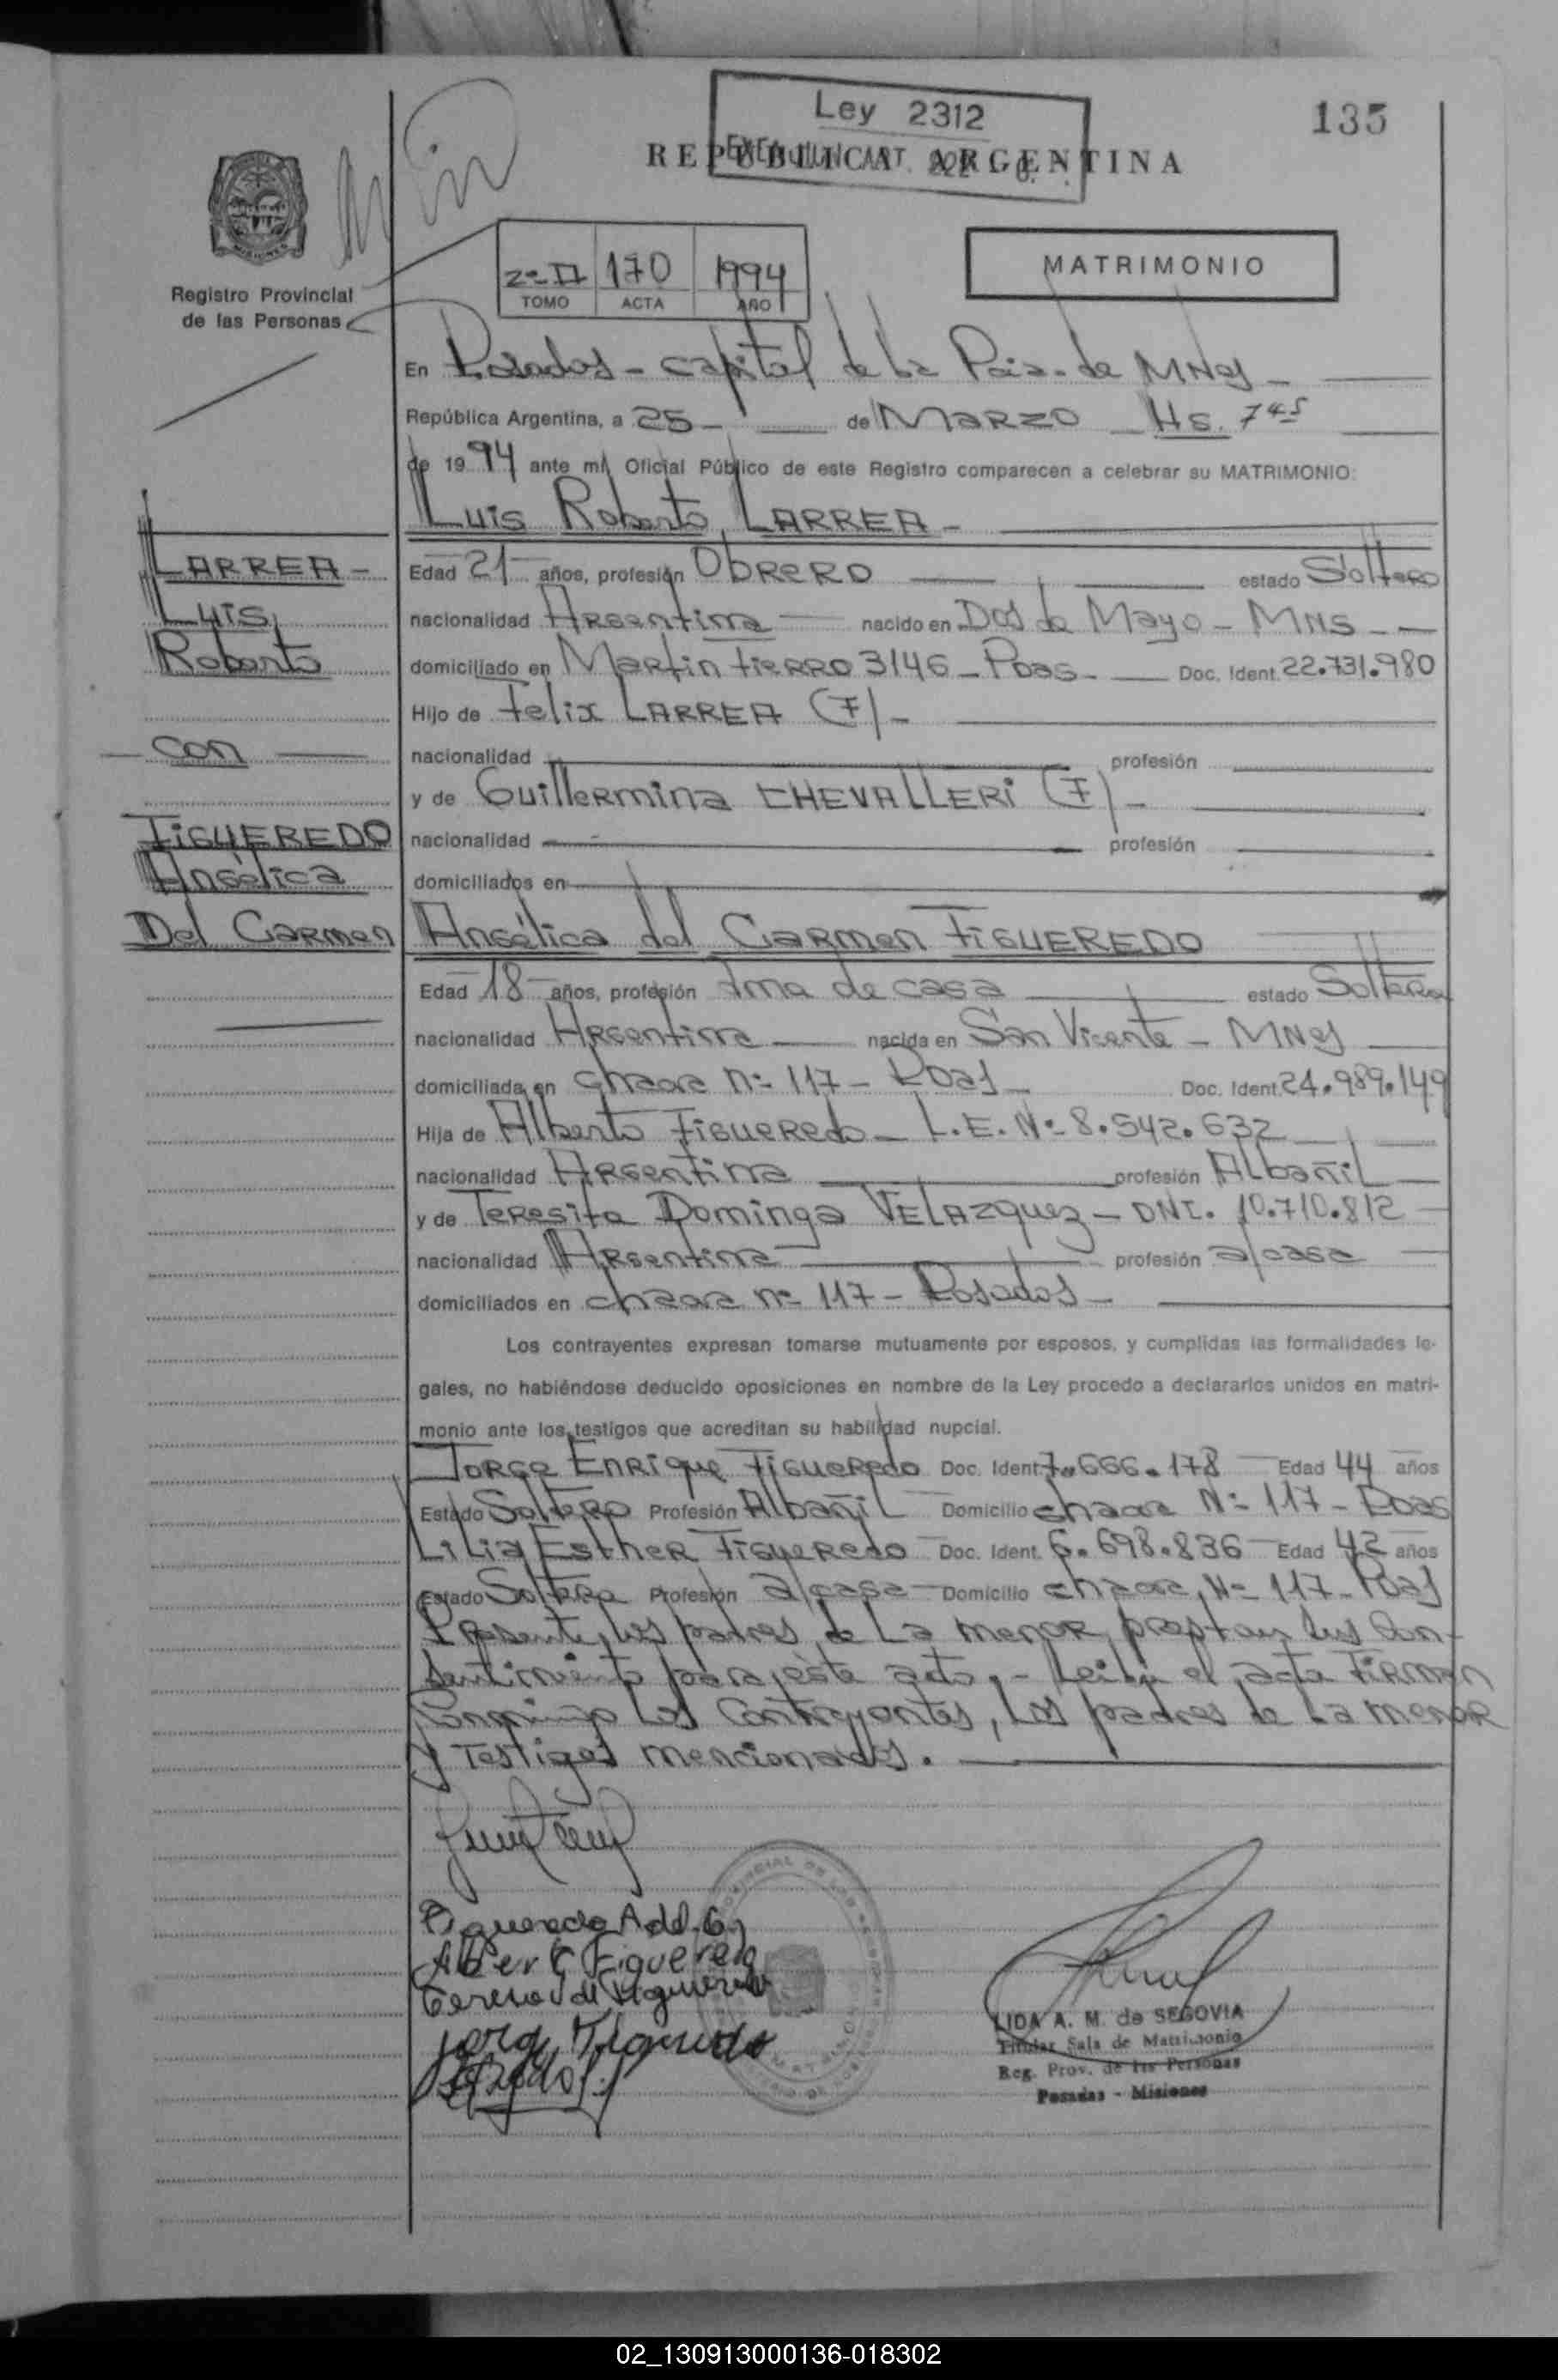 135
Ley 2312
REPUBLICA ARGENTINA
Registro Provincial
de las Personas
2º II 170 1994
TOMO ACTA AÑO
MATRIMONIO
En Posadas - Capital de La Pcia. de MNes -
República Argentina, a 25 - de MARZO Hs. 7 45
de 1994 ante mí, Oficial Público de este Registro comparecen a celebrar su MATRIMONIO:
Luis Roberto LARREA -
LARREA -
Luis
Roberto
con
FIGUEREDO
Angélica
Del Carmen
Edad 21 años, profesión Obrero estado Soltero
nacionalidad Argentina nacido en Dos de Mayo - MNS - -
domiciliado en Martin Fierro 3146 - Pdas - Doc. Ident. 22.731.980
Hijo de Felix LARREA (F) -
nacionalidad profesión
y de Guillermina CHEVALLERi (F) -
nacionalidad profesión
domiciliados en
Angélica del Carmen FIGUEREDO
Edad 18 años, profesión Ama de casa estado Soltera
nacionalidad Argentina nacida en San Vicente - MNes
domiciliada en chacra nº 117 - Pdas - Doc. Ident. 24.989.149
Hija de Alberto Figueredo - L.E. Nº 8.542.632
nacionalidad Argentina profesión Albañil
y de Teresita Dominga VELAZquez - DNI. 10.710.812
nacionalidad Argentina profesión a/casa
domiciliados en chacra nº 117 - Posadas -
Los contrayentes expresan tomarse mutuamente por esposos, y cumplidas las formalidades le-
gales, no habiéndose deducido oposiciones en nombre de la Ley procedo a declararlos unidos en matri-
monio ante los testigos que acreditan su habilidad nupcial.
Jorge Enrique Figueredo Doc. Ident. 7.666.178 Edad 44 años
Estado Soltero Profesión Albañil Domicilio chacra Nº 117 - Pdas
Lilia Esther Figueredo Doc. Ident. 6.698.836 Edad 42 años
Estado Soltera Profesión a/casa Domicilio chacra Nº 117 - Pdas
Presente, los padres de La menor, prestan sus Con-
sentimiento para éste acto. - Leida el acta Firman
Conmigo Los Contrayentes, Los padres de La menor
y Testigos mencionados.
Figueredo A del C
Albert Figueredo
Teresa V de Figueredo
Jorge Figueredo
LIDA A. M. de SEGOVIA
Titular Sala de Matrimonio
Reg. Prov. de las Personas
Posadas - Misiones
02_130913000136-018302